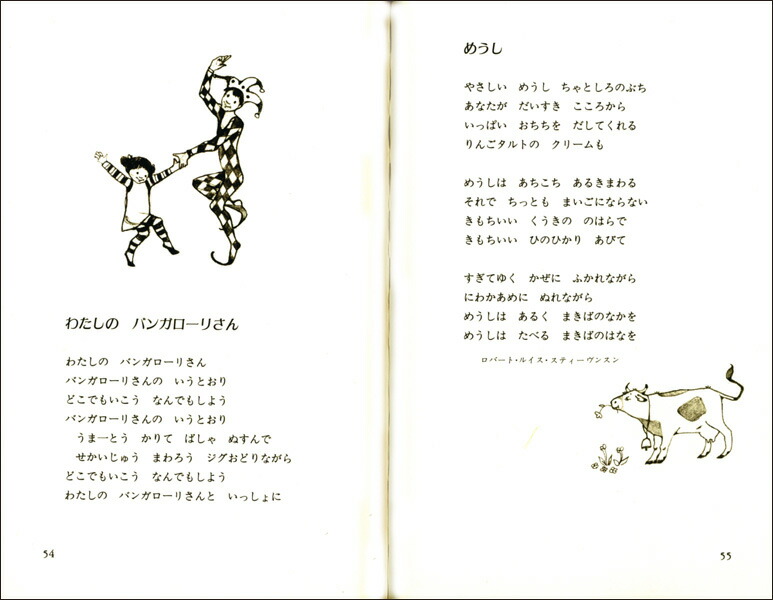 わたしの　バンガローリさん
わたしの　バンガローリさん
バンガローリさんの　いうとおり
どこでもいこう　なんでもしよう
バンガローリさんの　いうとおり
　うま一とう　かりて　ばしゃ　ぬすんで
　せかいじゅう　まわろう　ジグおどりながら
どこでもいこう　なんでもしよう
わたしの　バンガローリさんと　いっしょに
54
めうし
やさしい　めうし　ちゃとしろのぶち
あなたが　だいすき　こころから
いっぱい　おちちを　だしてくれる
りんごタルトの　クリームも
めうしは　あちこち　あるきまわる
それで　ちっとも　まいごにならない
きもちいい　くうきの　のはらで
きもちいい　ひのひかり　あびて
すぎてゆく　かぜに　ふかれながら
にわかあめに　ぬれながら
めうしは　あるく　まきばのなかを
めうしは　たべる　まきばのはなを
ロバート・ルイス・スティーヴンスン
55